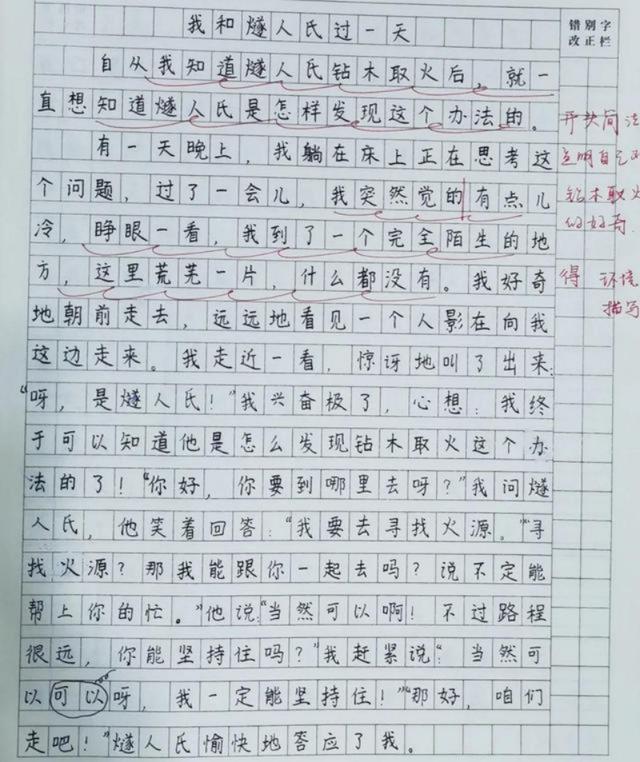 我和燧人氏过一天
错别字
改正栏
自从我知道燧人氏钻木取火后，就一
直想知道燧人氏是怎样发现这个办法的。
开头简洁
有一天晚上，我躺在床上正在思考这
个问题，过了一会儿，我突然觉的有点儿
钻木取火
的好奇.
冷，睁眼一看，我到了一个完全陌生的地
方，这里荒芜一片，什么都没有。我好奇
得 环境
描写
地朝前走去，远远地看见一个人影在向我
这边走来。我走近一看，惊讶地叫了出来:
“呀，是燧人氏！”我兴奋极了，心想：我终
于可以知道他是怎么发现钻木取火这个办
法的了！“你好，你要到哪里去呀？”我问燧
人氏，他笑着回答：“我要去寻找火源。”“寻
找火源？那我能跟你一起去吗？说不定能
帮上你的忙。”他说：“当然可以啊！不过路程
很远，你能坚持住吗？”我赶紧说：“当然可
以可以呀，我一定能坚持住！”“那好，咱们
走吧！”燧人氏愉快地答应了我。